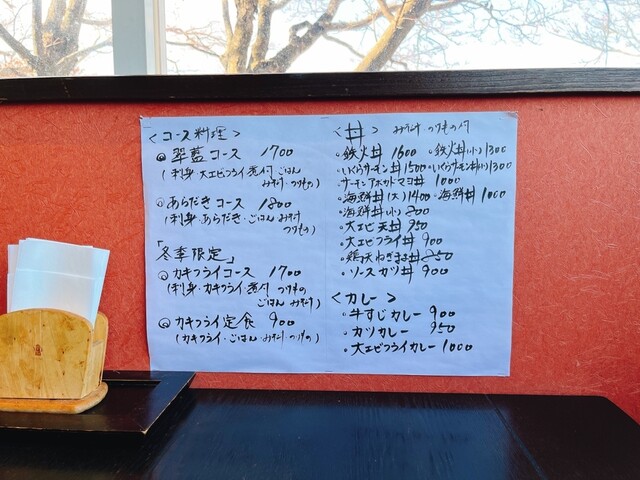 <コース料理>
翠藍コース 1700
(刺身 大エビフライ 煮付 ごはん
みそ汁・つけもの)
あらだきコース 1800
(刺身・あらだき・ごはん みそ汁
つけもの)
「冬季限定」
カキフライコース 1700
(刺身・カキフライ 煮付 つけもの
ごはん みそ汁)
カキフライ定食 900
(カキフライ・ごはん・みそ汁 つけもの)
<丼> みそ汁・つけもの付
鉄火丼 1600 ・鉄火丼(小)1300
・いくらサーモン丼 1500 ・いくらサーモン丼(小)1300
サーモンアボカドマヨ丼 1000
・海鮮丼(大)1400 ・海鮮丼 1000
・海鮮丼(小)800
・大エビ天丼 950
・大エビフライ丼 900
・鶏天ねぎまよ丼 850
・ソースカツ丼 900
<カレー>
・牛すじカレー 900
・カツカレー 950
・大エビフライカレー 1000